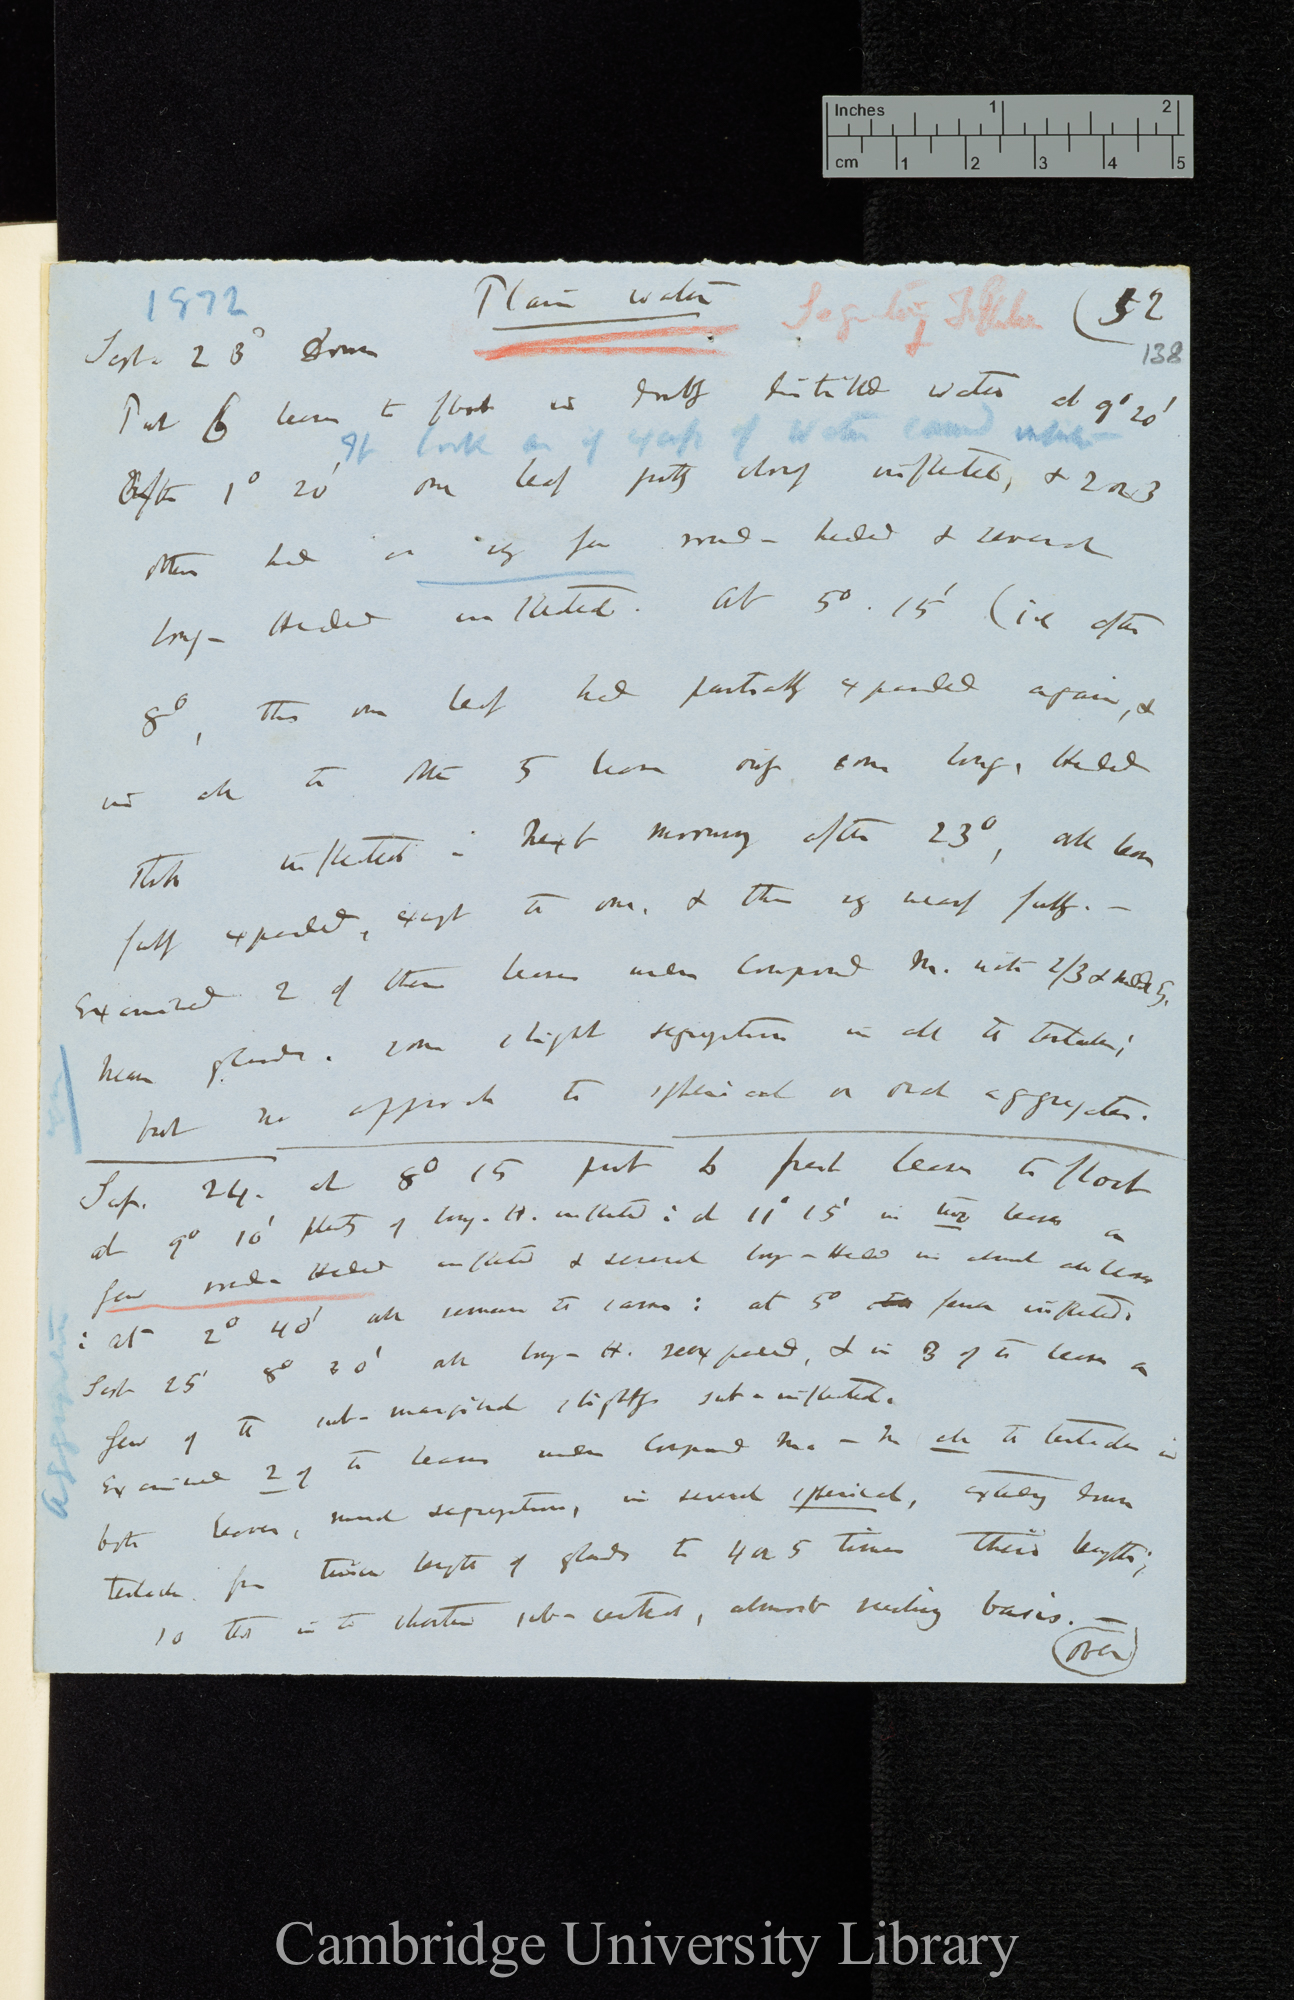 Inches 1 2
cm 1 2 3 4 5
1872 Plain water (52
138
Sept. 23d Down
Put 6 leaves to float in doubly distilled water at 9° 20'
It looks as if of water caused
After 1° 20' one leaf pretty closely inflected, & 2 or 3
others had a very few round-headed & several
long-headed inflected. At 5°. 15' (ie after
8°, the one leaf had partially expanded again, &
in all the other 5 leaves only some long-headed
inflected: Next morning after 23°, all leaves
fully expanded, except the one, & this very nearly fully. —
Examined 2 of these leaves under Compound M. with 2/3
glands. some slight segregation in all the tentacles;
but no approach to spherical or oval aggregates.
Sept. 24. at 8° 15 put 6 fresh leaves to float
at 9° 10' plenty of long-H. inflected: at 11° 15' in two leaves a
few round-Headed inflected & several long-Headed in almost all leaves
: at 2° 40' all remain the same: at 5° fewer inflected.
Sept 25' 8° 30' all long-H. reexpanded, & in 3 of the leaves a
few of the sub-marginal slightly sub-inflected.
Examined 2 of the leaves under Compound M. — In all the tentacles in
both leaves, much segregation, in several spherical, extending down
tentacle for twice length of glands to 4 or 5 times their length;
so this in the shorter sub-central, almost reaching basis. —
Aggregation
(over)
Cambridge University Library